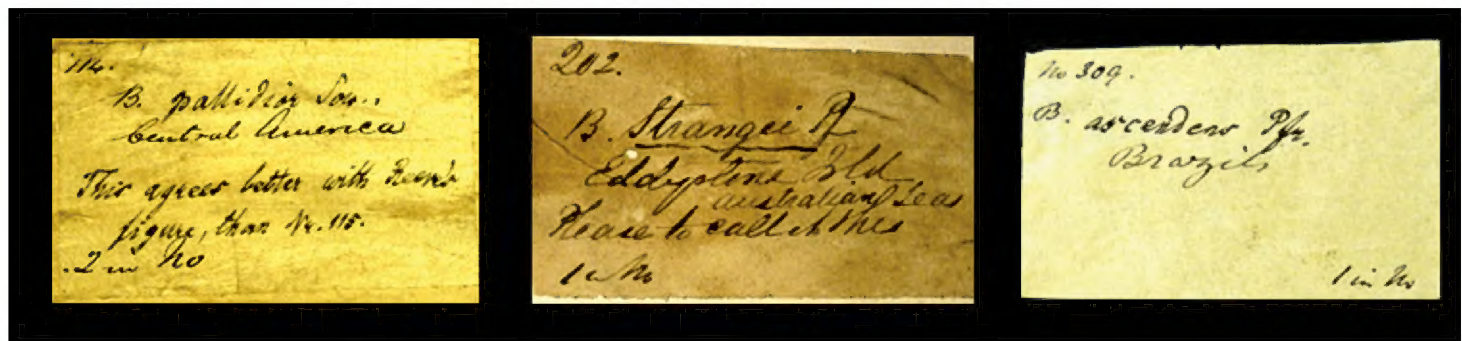 B. pallidior Sow.
Central America
This agrees better with Reeve's
figure, than No. 115.
2 in No
202.
B. Strangei Pf
Eddystone Isld
Australian Seas
Please to call it this
1 in No
No 309.
B. ascendens Pfr.
Brazils
1 in No